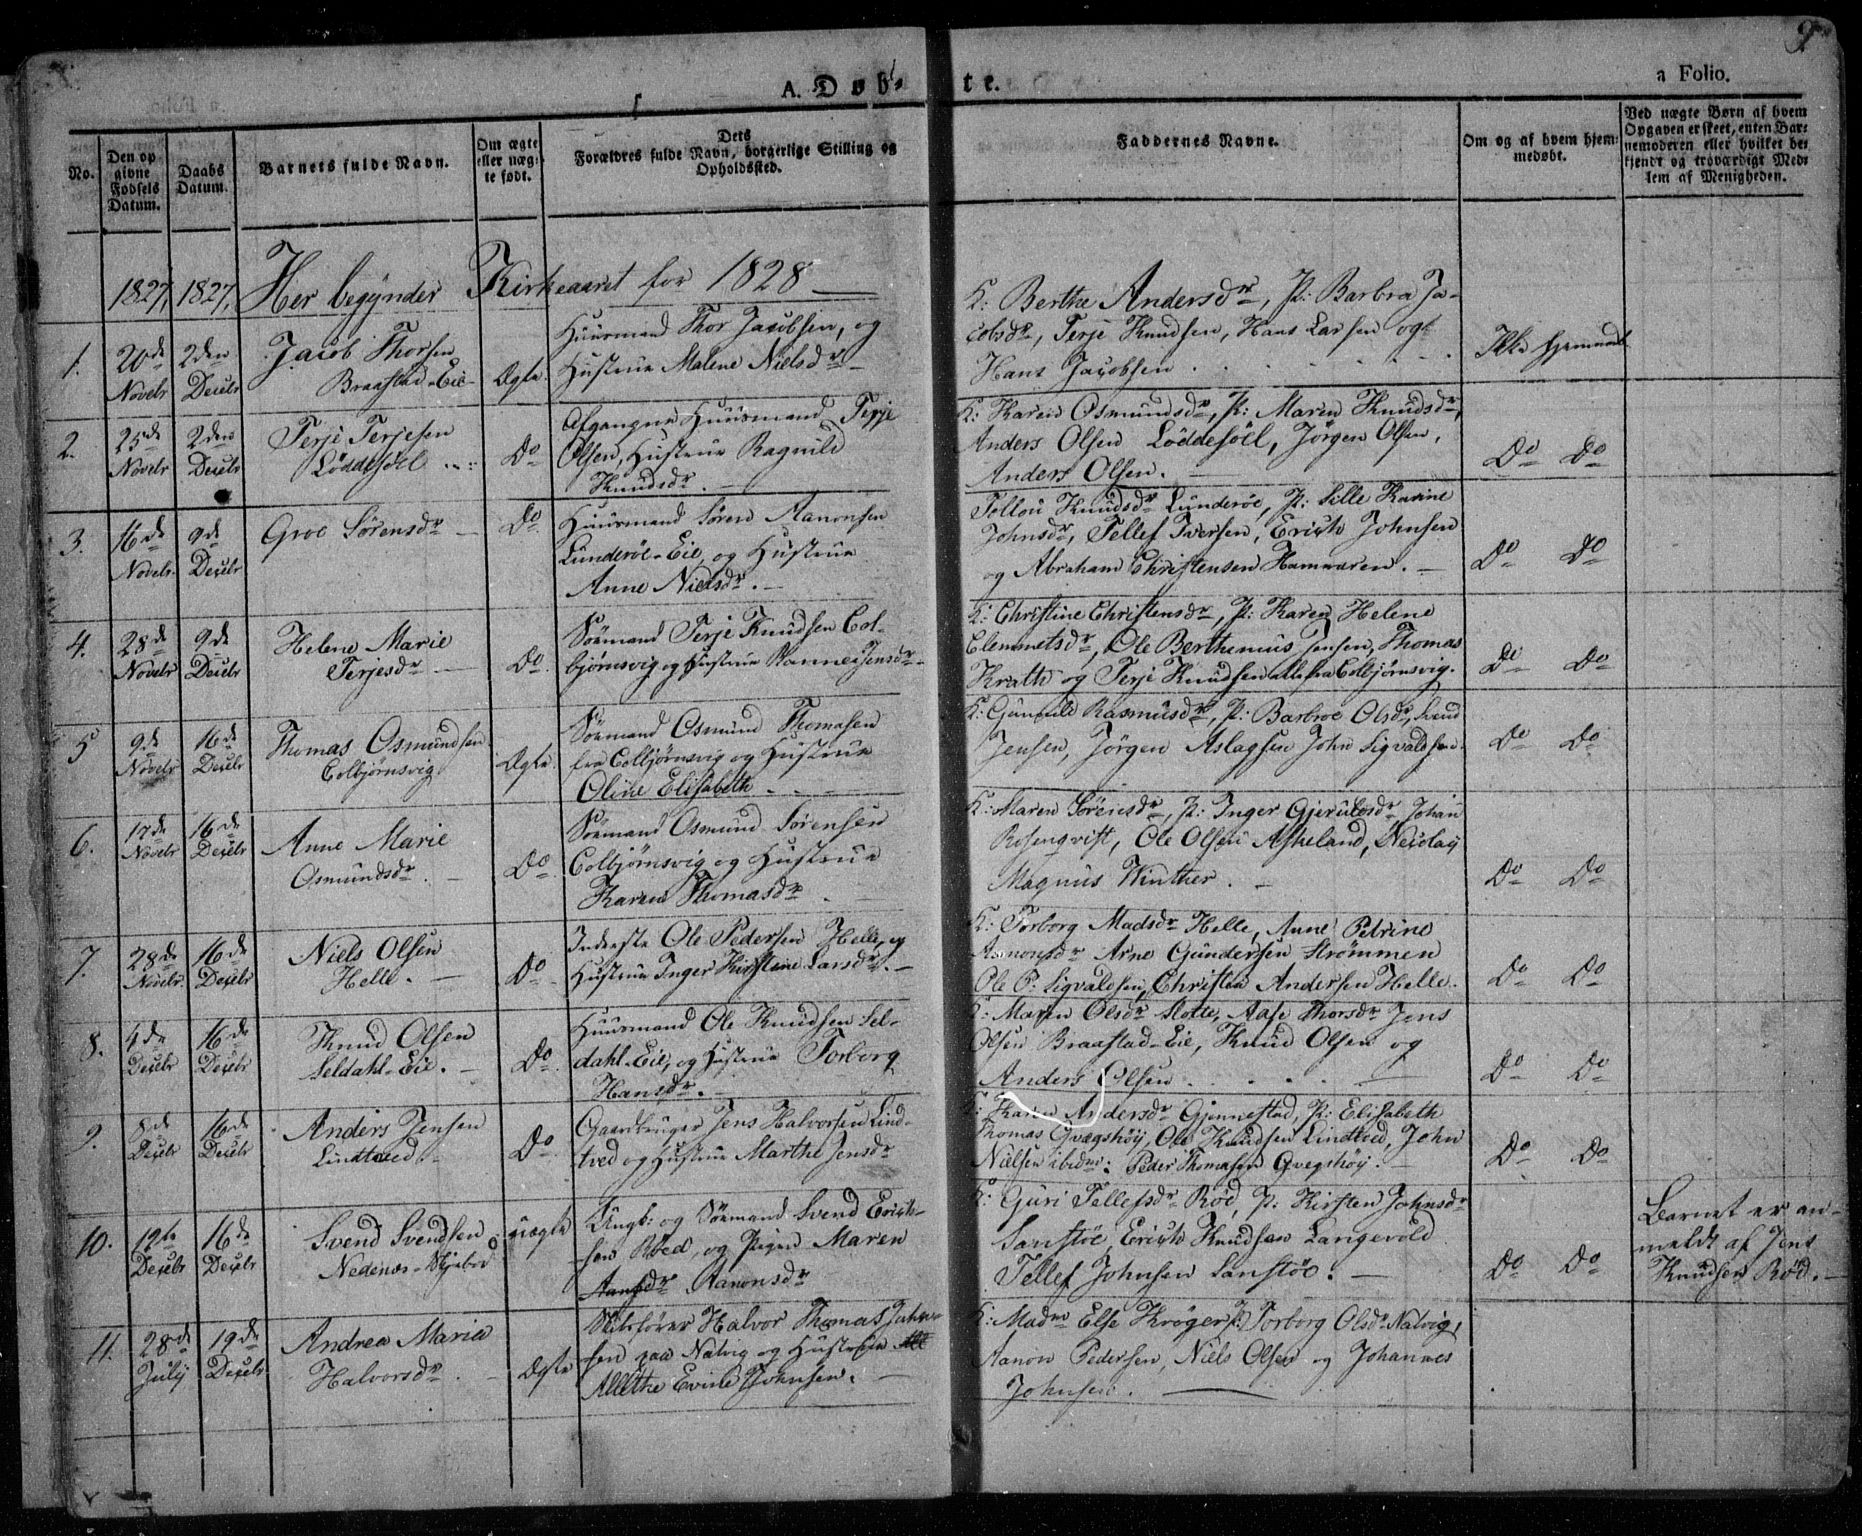 A. Døb- te.
9
a Folio.
No.
Den op
givne
Fødsels
Datum.
Daabs
Datum.
Barnets fulde Navn.
Om ægte
eller uæg-
te født.
Dets
Forældres fulde Navn, borgerlige Stilling og
Opholdssted.
Faddernes Navne.
Om og af hvem hjem-
medøbt.
Ved uægte Børn af hvem
Opgaven er skeet, enten Bar-
nemoderen eller hvilket be-
kjendt og troværdigt Med-
lem af Menigheden.
1827, 1827, Her begÿnder Kirkeaaret for 1828
1.
20de
Novebr
2den
Decbr
Jacob Thorsen
Braastad-Eie
Ægte.
Huusmand Thor Jacobsen, og
Hustrue Malene Nielsdr
K: Berthe Andersdr, P: Barbra Ja-
cobsdr, Terje Knudsen, Hans Larsen og
Hans Jacobsen
Ikke hjemmedt
2.
25de
Novebr
2den
Decbr
Terje Terjesen
Løddesøel
Do
Afgangne Huusmand Terje
Olsen, Hustrue Ragnild
Knudsdr.
K: Karen Osmundsdr, P: Maren Knudsdr,
Anders Olsen Løddesöel, Jørgen Olsen,
Anders Olsen.
Do Do
3.
16de
Novebr
9de
Decbr
Groe Sørensdr
Do
Huusmand Søren Aanonsen
Lunderöe-Eie, og Hustrue
Anne Nielsdr.
Knudsdr Lunderöe, P: Sille Karine
Johnsdr, Tellef Iversen, Erich Johnsen
og Abraham Christensen
Do Do
4.
28de
Novebr
9de
Decbr
Helene Marie
Terjesdr
Do
Sömand Terje Knudsen Col-
bjørnsvig og Hustrue Jensdr
K: Christine Christensdr, P: Karen Helene
Clemmetsdr, Ole Berthenius Jensen, Thomas
Krath og Terje Knudsen alle fra Colbjørnsvig.
Do Do
5
9de
Novebr
16de
Decbr
Thomas Osmundsen
Colbjørnsvig
Ægte.
Sömand Osmund Thomasen
fra Colbjørnsvig og Hustrue
Oline Elisabeth
K: Gunnild Rasmusdr, P: Barbroe Olsdr, Svend
Jensen, Jørgen Aslagsen John Sigvaldsen
Do Do
6.
17de
Novebr
16de
Decbr
Anne Marie
Osmundsdr.
Do
Sömand Osmund Sørensen
Colbjørnsvig og Hustrue
Karen Thomasdr
K: Maren Sörensdr, P: Inger Gjerulvsdr, Johan
Rosenqvist, Ole Olsen Askeland, Nicolay
Magnus Winther.
Do Do
7.
28de
Novebr.
16de
Decbr
Niels Olsen
Helle.
Do
Inderste Ole Pedersen Helle, og
Hustrue Inger Kirstine Larsdr.
K: Torborg Madsdr Helle, Anne Petrine
Aanonsdr Arne Gundersen Strømmen
Ole P: Sigvaldsen, Christen Andersen Helle.
Do Do
8.
4de
Decbr
16de
Decbr
Knud Olsen
Seldahl-Eie.
Do
Huusmand Ole Knudsen Sel-
dahl-Eie, og Hustrue Torborg
Hansdr.
K: Maren Olsdr Slotte, Aase Thorsdr Jens
Olsen Braastad-Eie, Knud Olsen og
Anders Olsen
Do Do
9.
8de
Decbr
16de
Decbr
Anders Jensen
Lindtved.
Do
Gaardbruger Jens Halvorsen Lind-
tved og Hustrue Marthe Jensdr
K: Karen Andersdr Gjennestad, P: Elisabeth
Thomas Qvægshöÿ, Ole Knudsen Lindtved, John
Nielsen ibidm: Peder Thomasen Qvegshöÿ.
Do Do
10.
12te
Decbr
16de
Decbr
Svend Svendsen
Nedenæs
uægte
Ungk: og Sömand Svend Erich-
sen Röed, og Pigen Maren
Aanonsdr
K: Guri Tellefsdr Röd, P: Kirsten Johnsdr
Sanstöe, Erich Knudsen Langevold
Tellef Johnsen Sanstöe.
Do Do
Barnet er an-
meldt af Jens
Knudsen Röd.
11.
28de
Julÿ
19de
Decbr
Andrea Maria
Halvorsdr.
Ægte
Skibsfører Halvor Thomas John-
sen paa Natvig og Hustrue
Allethe Evine Johnsen.
K: Madm Else Kröger, P: Torborg Olsdr Natvig,
Aanon Pedersen, Niels Olsen og Johannes
Johnsen.